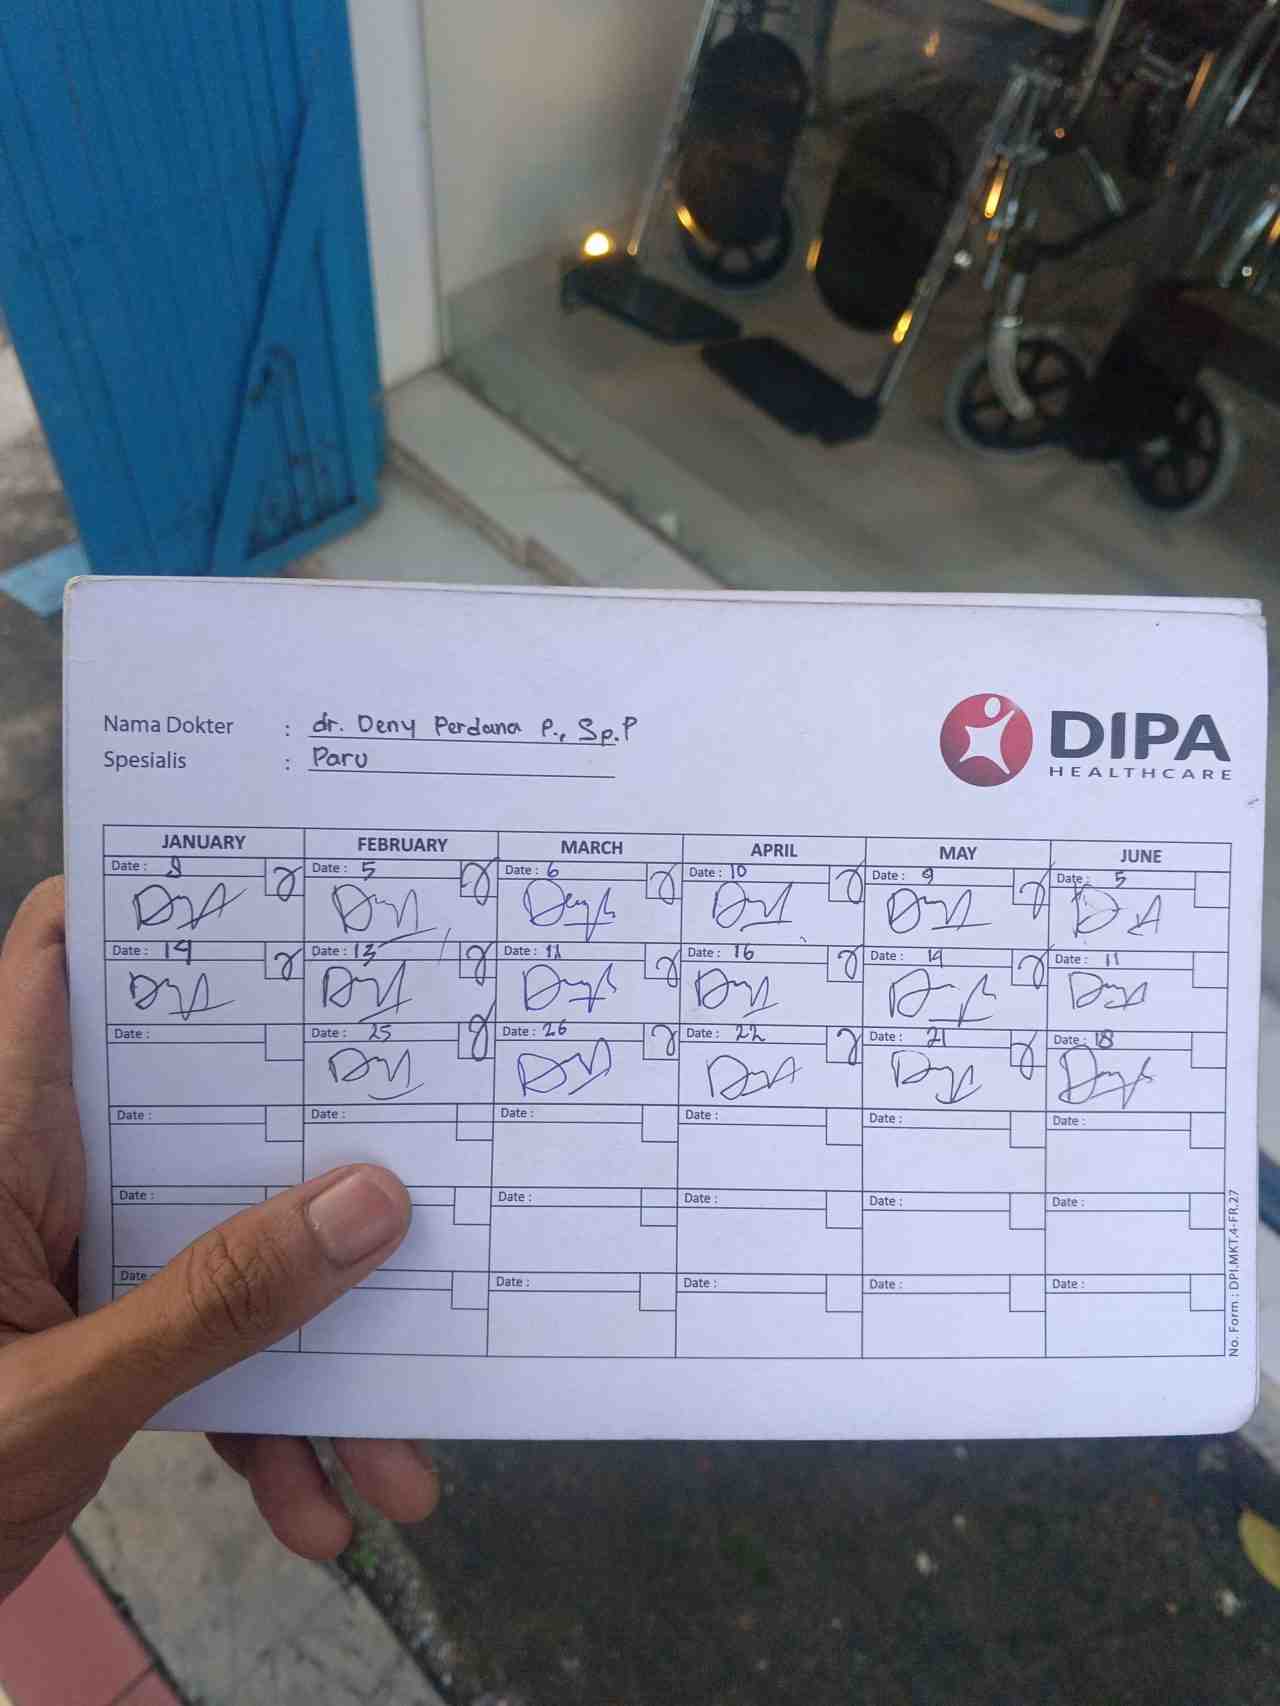 Nama Dokter : dr. Deny Perdana P., Sp.P
Spesialis : Paru
DIPA
HEALTHCARE
JANUARY FEBRUARY MARCH APRIL MAY JUNE
Date : 8 Date : 5 Date : 6 Date : 10 Date : 9 Date : 5
Date : 14 Date : 13 Date : 11 Date : 16 Date : 14 Date : 11
Date : Date : 25 Date : 26 Date : 22 Date : 21 Date : 18
Date : Date : Date : Date : Date : Date :
Date : Date : Date : Date : Date :
Date Date : Date : Date : Date :
No. Form : DPI.MKT.4-FR.27